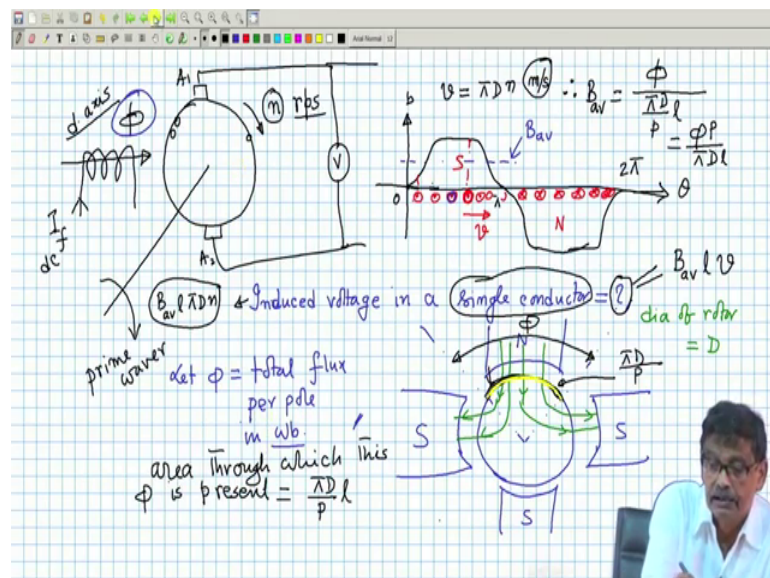 Arial Normal 12
d axis
Φ
A1
n rps
I_f
dc
V
A2
prime
waver
b
v = πDn m/s ∴ B_av = Φ / (πD/P) l
= ΦP / πDl
B_av
S
0
π
2π
θ
N
v
B_av l πDn ← Induced voltage in a single conductor = ? = B_av l v
dia of rotor
= D
Let Φ = total flux
per pole
in wb.
area through which this
Φ is present = πD/P l
Φ
N
πD/P
S
S
S